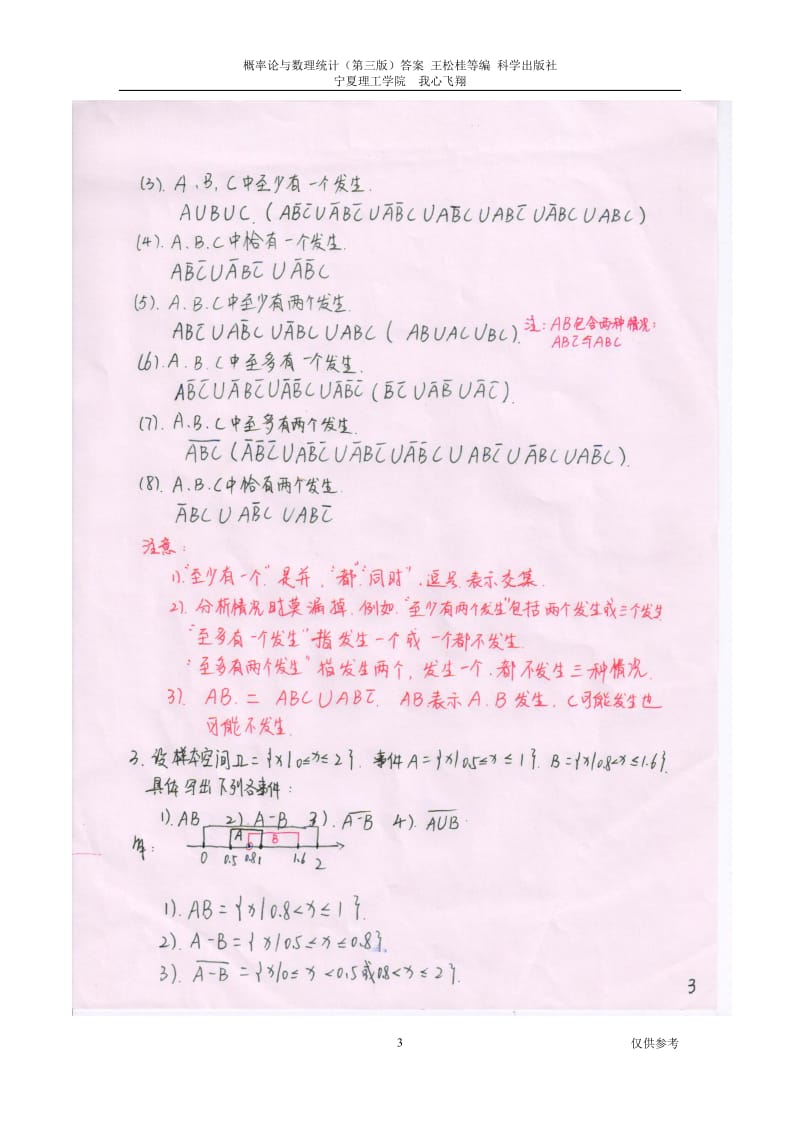 概率论与数理统计（第三版）答案 王松桂等编 科学出版社
宁夏理工学院 我心飞翔
(3). A、B、C中至少有一个发生.
A∪B∪C. (AB̅C̅∪A̅BC̅∪A̅B̅C∪AB̅C∪ABC̅∪A̅BC∪ABC)
(4). A.B.C中恰有一个发生.
AB̅C̅∪A̅BC̅∪A̅B̅C
(5). A.B.C中至少有两个发生.
ABC̅∪AB̅C∪A̅BC∪ABC (AB∪AC∪BC). 注: AB包含两种情况:
ABC̅与ABC
(6). A.B.C中至多有一个发生.
AB̅C̅∪A̅BC̅∪A̅B̅C∪A̅B̅C̅ (B̅C̅∪A̅B̅∪A̅C̅).
(7). A.B.C中至多有两个发生.
(8). A.B.C中恰有两个发生.
A̅BC∪AB̅C∪ABC̅
注意:
1). "至少有一个"是并, "都""同时", 逗号表示交集.
2). 分析情况时莫漏掉. 例如. "至少有两个发生"包括两个发生或三个发生
"至多有一个发生"指发生一个或一个都不发生.
"至多有两个发生"指发生两个, 发生一个, 都不发生三种情况.
3). AB = ABC∪ABC̅. AB表示A.B发生, C可能发生也
可能不发生.
3. 设样本空间Ω={x|0≤x≤2}. 事件A={x|0.5≤x≤1}. B={x|0.8<x≤1.6}.
具体写出下列各事件:
1). AB 2). A-B 3). \overline{A-B} 4). \overline{A∪B}.
解:
A B
0 0.5 0.8 1 1.6 2
1). AB={x|0.8<x≤1}.
2). A-B={x|0.5≤x≤0.8}.
3). \overline{A-B}={x|0≤x<0.5或0.8<x≤2}.
3
3 仅供参考